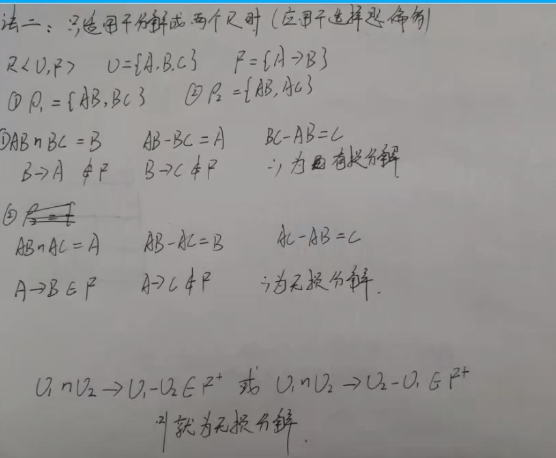 法二：只适用于分解成两个R时（应用于选择题偏多）
R<U,F> U={A,B,C} F={A→B}
①ρ₁={AB,BC} ②ρ₂={AB,AC}
①AB∩BC=B AB-BC=A BC-AB=C
B→A ∉F B→C∉F ∴为有损分解
②
AB∩AC=A AB-AC=B AC-AB=C
A→B∈F A→C∉F ∴为无损分解.
U₁∩U₂→U₁-U₂∈F⁺ 或 U₁∩U₂→U₂-U₁∈F⁺
则就为无损分解.